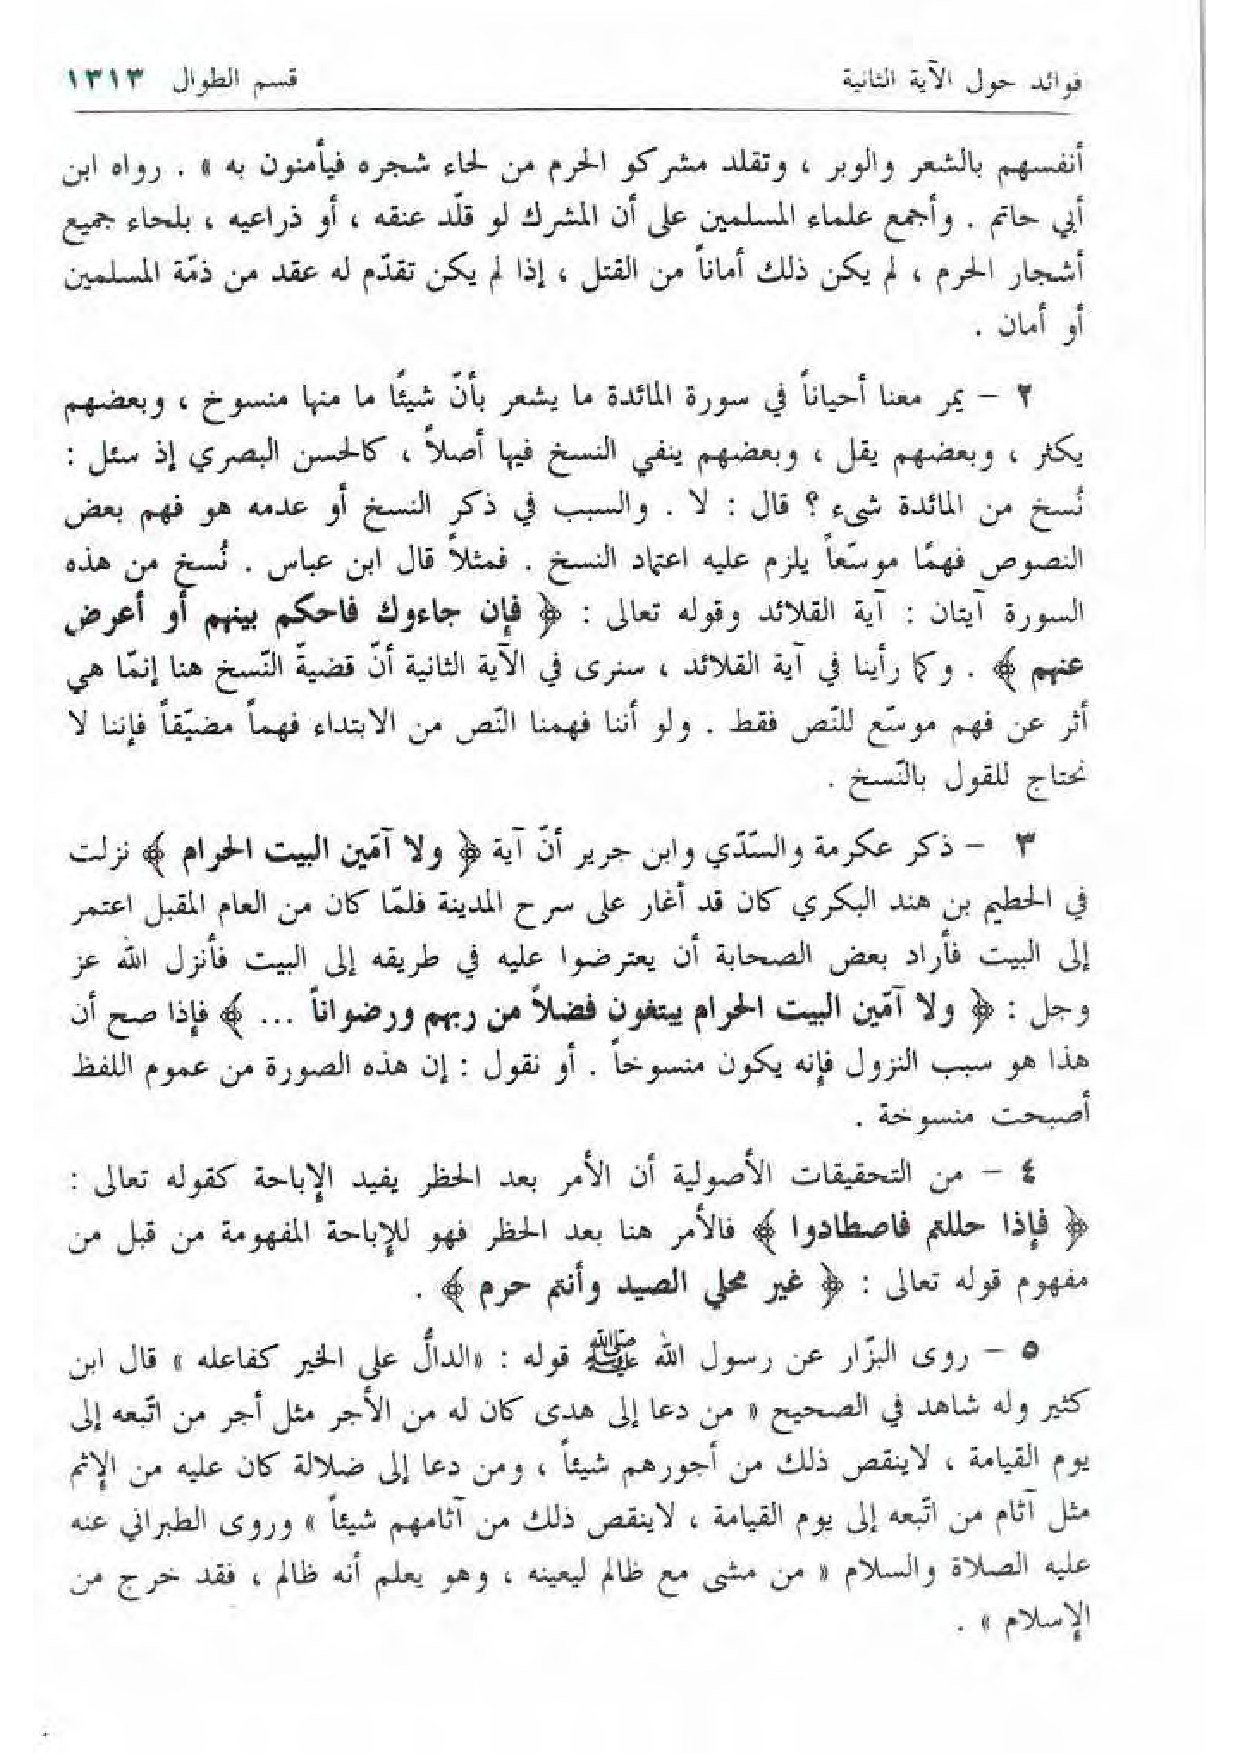 فوائد حول الآية الثانية قسم الطوال ١٣١٣
أنفسهم بالشعر والوبر ، وتقلد مشركو الحرم من لحاء شجره فيأمنون به » . رواه ابن
أبي حاتم . وأجمع علماء المسلمين على أن المشرك لو قلّد عنقه ، أو ذراعيه ، بلحاء جميع
أشجار الحرم ، لم يكن ذلك أماناً من القتل ، إذا لم يكن تقدّم له عقد من ذمّة المسلمين
أو أمان .
٢ – يمر معنا أحياناً في سورة المائدة ما يشعر بأنّ شيئًا ما منها منسوخ ، وبعضهم
يكثر ، وبعضهم يقل ، وبعضهم ينفي النسخ فيها أصلاً ، كالحسن البصري إذ سئل :
نُسخ من المائدة شيء ؟ قال : لا . والسبب في ذكر النسخ أو عدمه هو فهم بعض
النصوص فهمًا موسّعاً يلزم عليه اعتماد النسخ . فمثلاً قال ابن عباس . نُسخ من هذه
السورة آيتان : آية القلائد وقوله تعالى : ﴿ فإن جاءوك فاحكم بينهم أو أعرض
عنهم ﴾ . وكما رأينا في آية القلائد ، سنرى في الآية الثانية أنّ قضيةَ النّسخ هنا إنمّا هي
أثر عن فهم موسّع للنّص فقط . ولو أننا فهمنا النّص من الابتداء فهماً مضيّقاً فإننا لا
نحتاج للقول بالنّسخ .
٣ – ذكر عكرمة والسّدّي وابن جرير أنّ آية ﴿ ولا آمّين البيت الحرام ﴾ نزلت
في الحطيم بن هند البكري كان قد أغار على سرح المدينة فلمّا كان من العام المقبل اعتمر
إلى البيت فأراد بعض الصحابة أن يعترضوا عليه في طريقه إلى البيت فأنزل الله عز
وجل : ﴿ ولا آمّين البيت الحرام يبتغون فضلاً من ربهم ورضواناً ... ﴾ فإذا صح أن
هذا هو سبب النزول فإنه يكون منسوخاً . أو نقول : إن هذه الصورة من عموم اللفظ
أصبحت منسوخة .
٤ – من التحقيقات الأصولية أن الأمر بعد الحظر يفيد الإباحة كقوله تعالى :
﴿ فإذا حللتم فاصطادوا ﴾ فالأمر هنا بعد الحظر فهو للإباحة المفهومة من قبل من
مفهوم قوله تعالى : ﴿ غير محلي الصيد وأنتم حرم ﴾ .
٥ – روى البزّار عن رسول الله ﷺ قوله : «الدالُّ على الخير كفاعله » قال ابن
كثير وله شاهد في الصحيح « من دعا إلى هدى كان له من الأجر مثل أجر من اتّبعه إلى
يوم القيامة ، لاينقص ذلك من أجورهم شيئاً ، ومن دعا إلى ضلالة كان عليه من الإثم
مثل آثام من اتّبعه إلى يوم القيامة ، لاينقص ذلك من آثامهم شيئاً » وروى الطبراني عنه
عليه الصلاة والسلام « من مشى مع ظالم ليعينه ، وهو يعلم أنه ظالم ، فقد خرج من
الإسلام » .